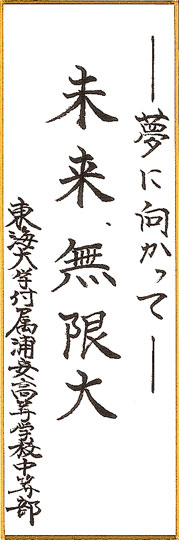 ―夢に向かって―
未来、無限大
東海大学付属浦安高等学校中等部